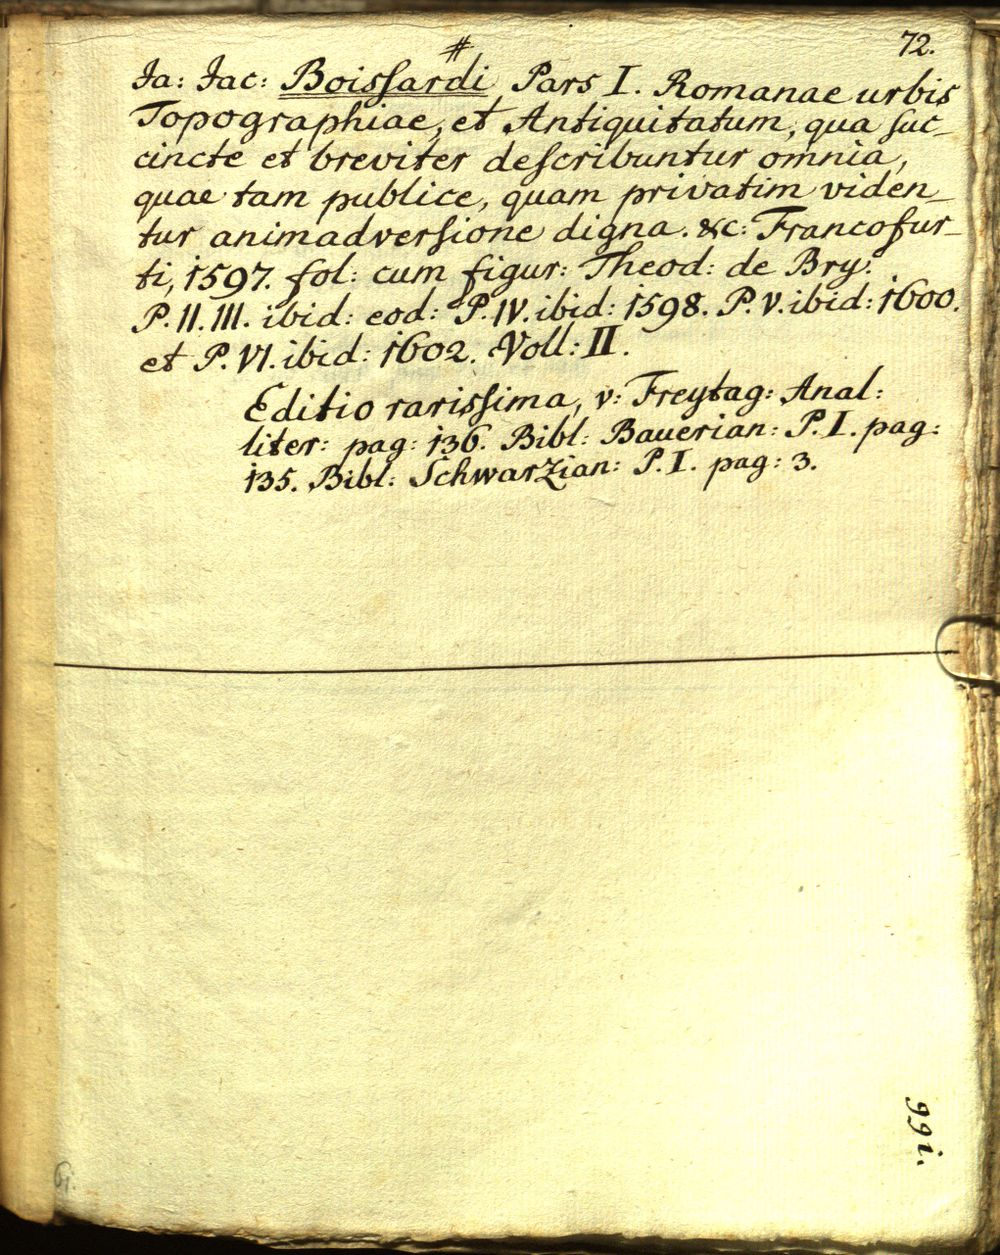 72.
#
Ja: Jac: Boisſardi Pars I. Romanae urbis
Topographiae, et Antiquitatum, qua ſuc-
cincte et breviter deſcribuntur omnia,
quae tam publice, quam privatim viden-
tur animadverſione digna. &c: Francofur-
ti, 1597. fol: cum figur: Theod: de Bry.
P. II. III. ibid: eod: P. IV. ibid: 1598. P. V. ibid: 1600.
et P. VI. ibid: 1602. Voll: II.
Editio rarisſima, v: Freytag: Anal:
liter: pag: 136. Bibl: Bauerian: P. I. pag:
135. Bibl: Schwarzian: P. I. pag: 3.